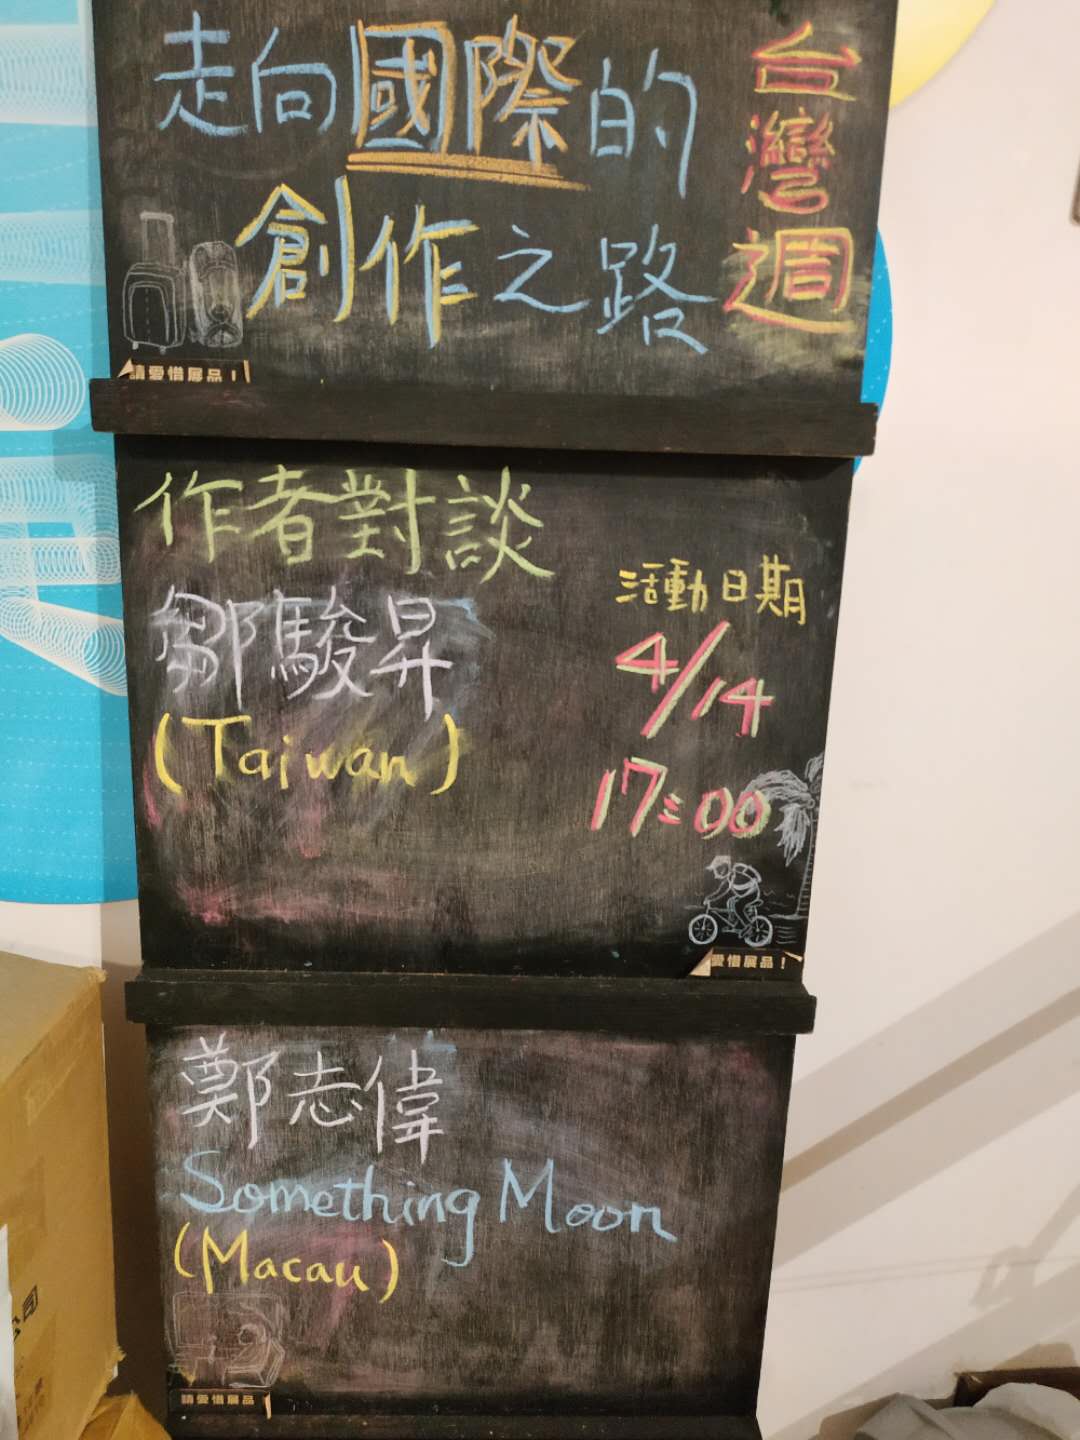 走向國際的
創作之路
台灣週
請愛惜展品！
作者對談
鄒駿昇
(Taiwan)
活動日期
4/14
17:00
愛惜展品！
鄭志偉
Something Moon
(Macau)
請愛惜展品
公司